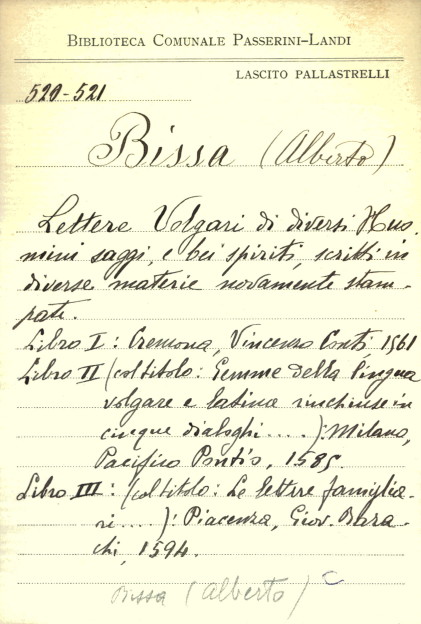 BIBLIOTECA COMUNALE PASSERINI-LANDI
LASCITO PALLASTRELLI
520-521
Bissa (Alberto)
Lettere Volgari di diversi Huo
mini saggi, e bei spiriti, scritti in
diverse materie novamente stam-
pate.
Libro I: Cremona, Vincenzo Conti 1561
Libro II (col titolo: Gemme della lingua
volgare e latina rinchiuse in
cinque dialoghi....): Milano,
Pacifico Pontio, 1585.
Libro III: (col titolo: Le lettere famiglia-
ri....): Piacenza, Giov. Baza-
chi, 1594.
Bissa (Alberto)